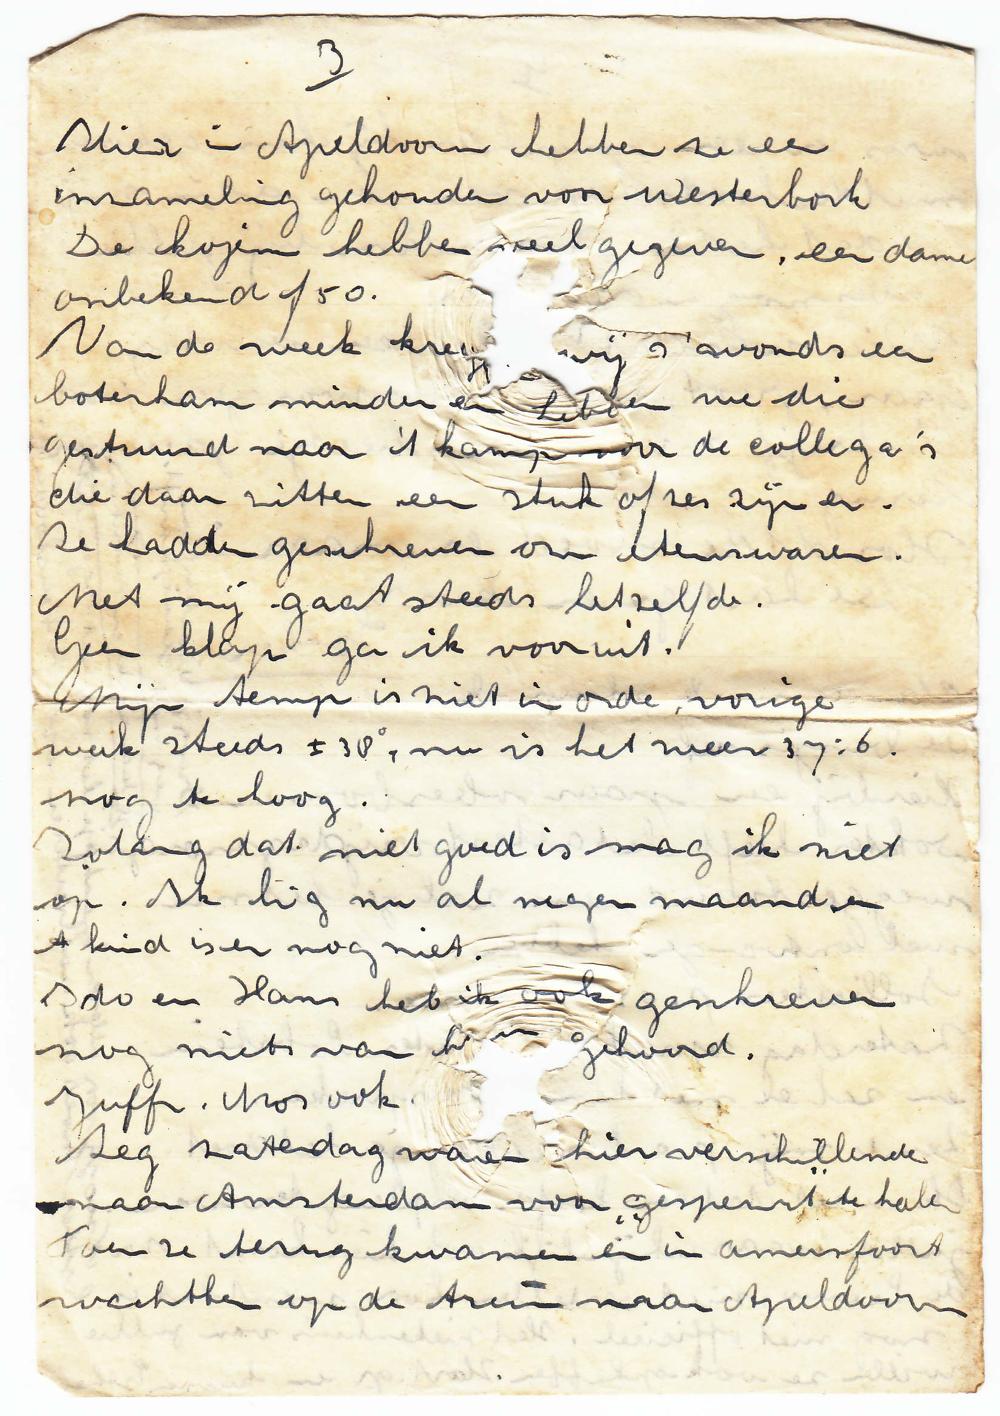 3
Hier in Apeldoorn hebben ze een
inzameling gehouden voor Westerbork
De kojem hebben veel gegeven, een dame
onbekend ƒ 50.
Van de week kregen wij s'avonds een
boterham minder en hebben we die
gestuurd naar 't kamp voor de collega's
die daar zitten een stuk of zes zijn er.
Ze hadden geschreven om etenswaren.
Met mij gaat steeds hetzelfde.
Geen klap ga ik vooruit.
Mijn temp is niet in orde, vorige
week steeds ± 38°, nu is het weer 37:6.
nog te hoog.
Zolang dat niet goed is mag ik niet
op. Ik lig nu al negen maand en
t kind is er nog niet.
en Hans heb ik ook geschreven
nog niets van hun gehoord.
Juffr. Mos ook.
Zeg zaterdag waren hier verschillende
naar Amsterdam voor „gesperrt" te halen
Toen ze terug kwamen en in amersfoort
wachtten op de trein naar Apeldoorn